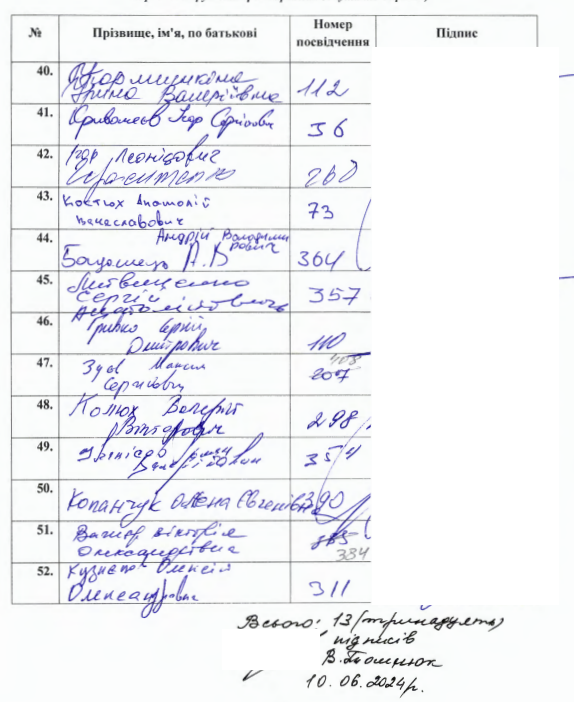 № Прізвище, ім'я, по батькові Номер посвідчення Підпис
40. Кормишкіна
Ірина Валеріївна 112
41. Кривошеєв Ігор Сергійович 36
42. Ігор Леонідович
Герасименко 260
43. Костюх Анатолій
Вячеславович 73
44. Андрій Володими
рович
А.В 364
45. Литвиненко
Сергій
Анатолійович 357
46. Гривко Сергій
Дмитрович 110
47. Зуєв Максим
Сергійович 207 403
48. Колюх Валерій
Вікторович 298
49. 354
50. Копанчук Олена Євгенівна 390
51. Вагнєр Вікторія
Олександрівна 384
52. Кузнєцов Олексій
Олександрович 311
Всього: 13 (тринадцять)
підписів
10.06.2024р.